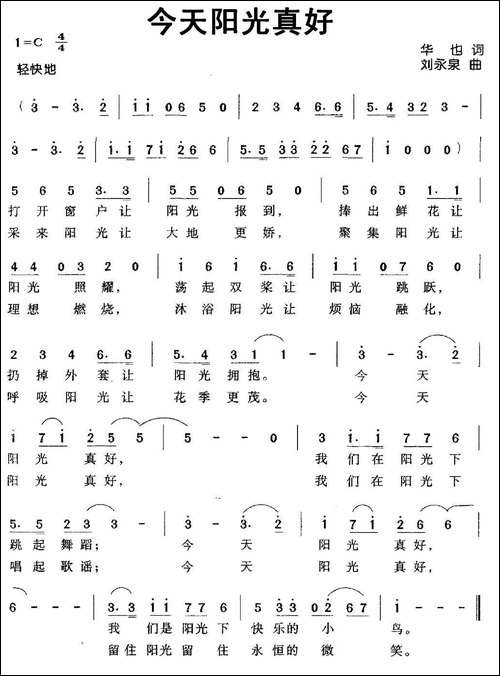 今天阳光真好
1=C 4/4
华 也 词
轻快地
刘永泉 曲
(3 - 3. 2 | 1 1 0 6 5 0 | 2 3 4 6. 6 | 5. 4 3 2 3 -
3 - 3. 2 | 1. 1 7 1 2 6 6 | 5. 5 3 3 2 2 6 7 | 1 0 0 0)
5 6 5 3. 3 | 5 5 0 6 5 0 | 5 6 5 1. 1
打开窗户让 阳光 报到, 捧出鲜花让
采来阳光让 大地 更娇, 聚集阳光让
4 4 0 3 2 0 | 1 6 1 6. 6 | 1 1 0 5 5 0
阳光 照耀, 荡起双桨让 阳光 跳跃,
理想 燃烧, 沐浴阳光让 烦恼 融化,
2 3 4 6. 6 | 5. 4 3 1 1 - | 3 - 3. 2
扔掉外套让 阳光拥抱。 今 天
呼吸阳光让 花季更茂。 今 天
1 7 1 2 5 5 | 5 - - 0 | 3 1. 1 7 7 6
阳光 真好, 我们在阳光下
阳光 真好, 我们在阳光下
5. 5 2. 3 3 - | 3 - 3. 2 | 1 7 1 2 6 6
跳起舞蹈; 今 天 阳光 真好,
唱起歌谣; 今 天 阳光 真好,
6 - - - | 3. 3 1 1 7 7 6 | 5 3 3 0 2 6 7 | 1 - - -
我们是阳光下 快乐的小 鸟。
留住阳光留住 永恒的微 笑。